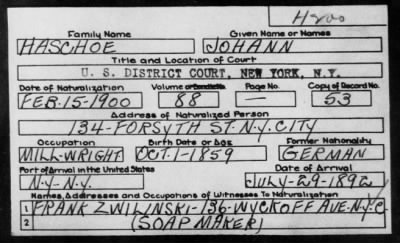 H200
Family Name Given Name or Names
HASCHOE JOHANN
Title and Location of Court
U. S. DISTRICT COURT, NEW YORK, N.Y.
Date of Naturalization Volume or Bundle No. Page No. Copy of Record No.
FEB-15-1900 88 — 53
Address of Naturalized Person
134-FORSYTH ST. N.Y. CITY
Occupation Birth Date or Age Former Nationality
MILL-WRIGHT OCT. 1-1859 GERMAN
Port of Arrival in the United States Date of Arrival
N-Y-N.Y. JULY-29-1892
Names, Addresses and Occupations of Witnesses To Naturalization
1 FRANK ZWILINSKI-136-WYCKOFF AVE-N.Y.C.
2 (SOAP MAKER)